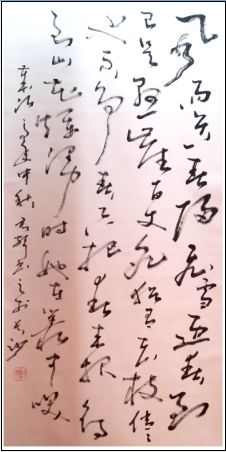 风雨送春归飞雪迎春到
已是悬崖百丈冰犹有花枝俏〻
也不争春只把春来报待
到山花烂漫时她在丛中笑
年中秋 书于长沙